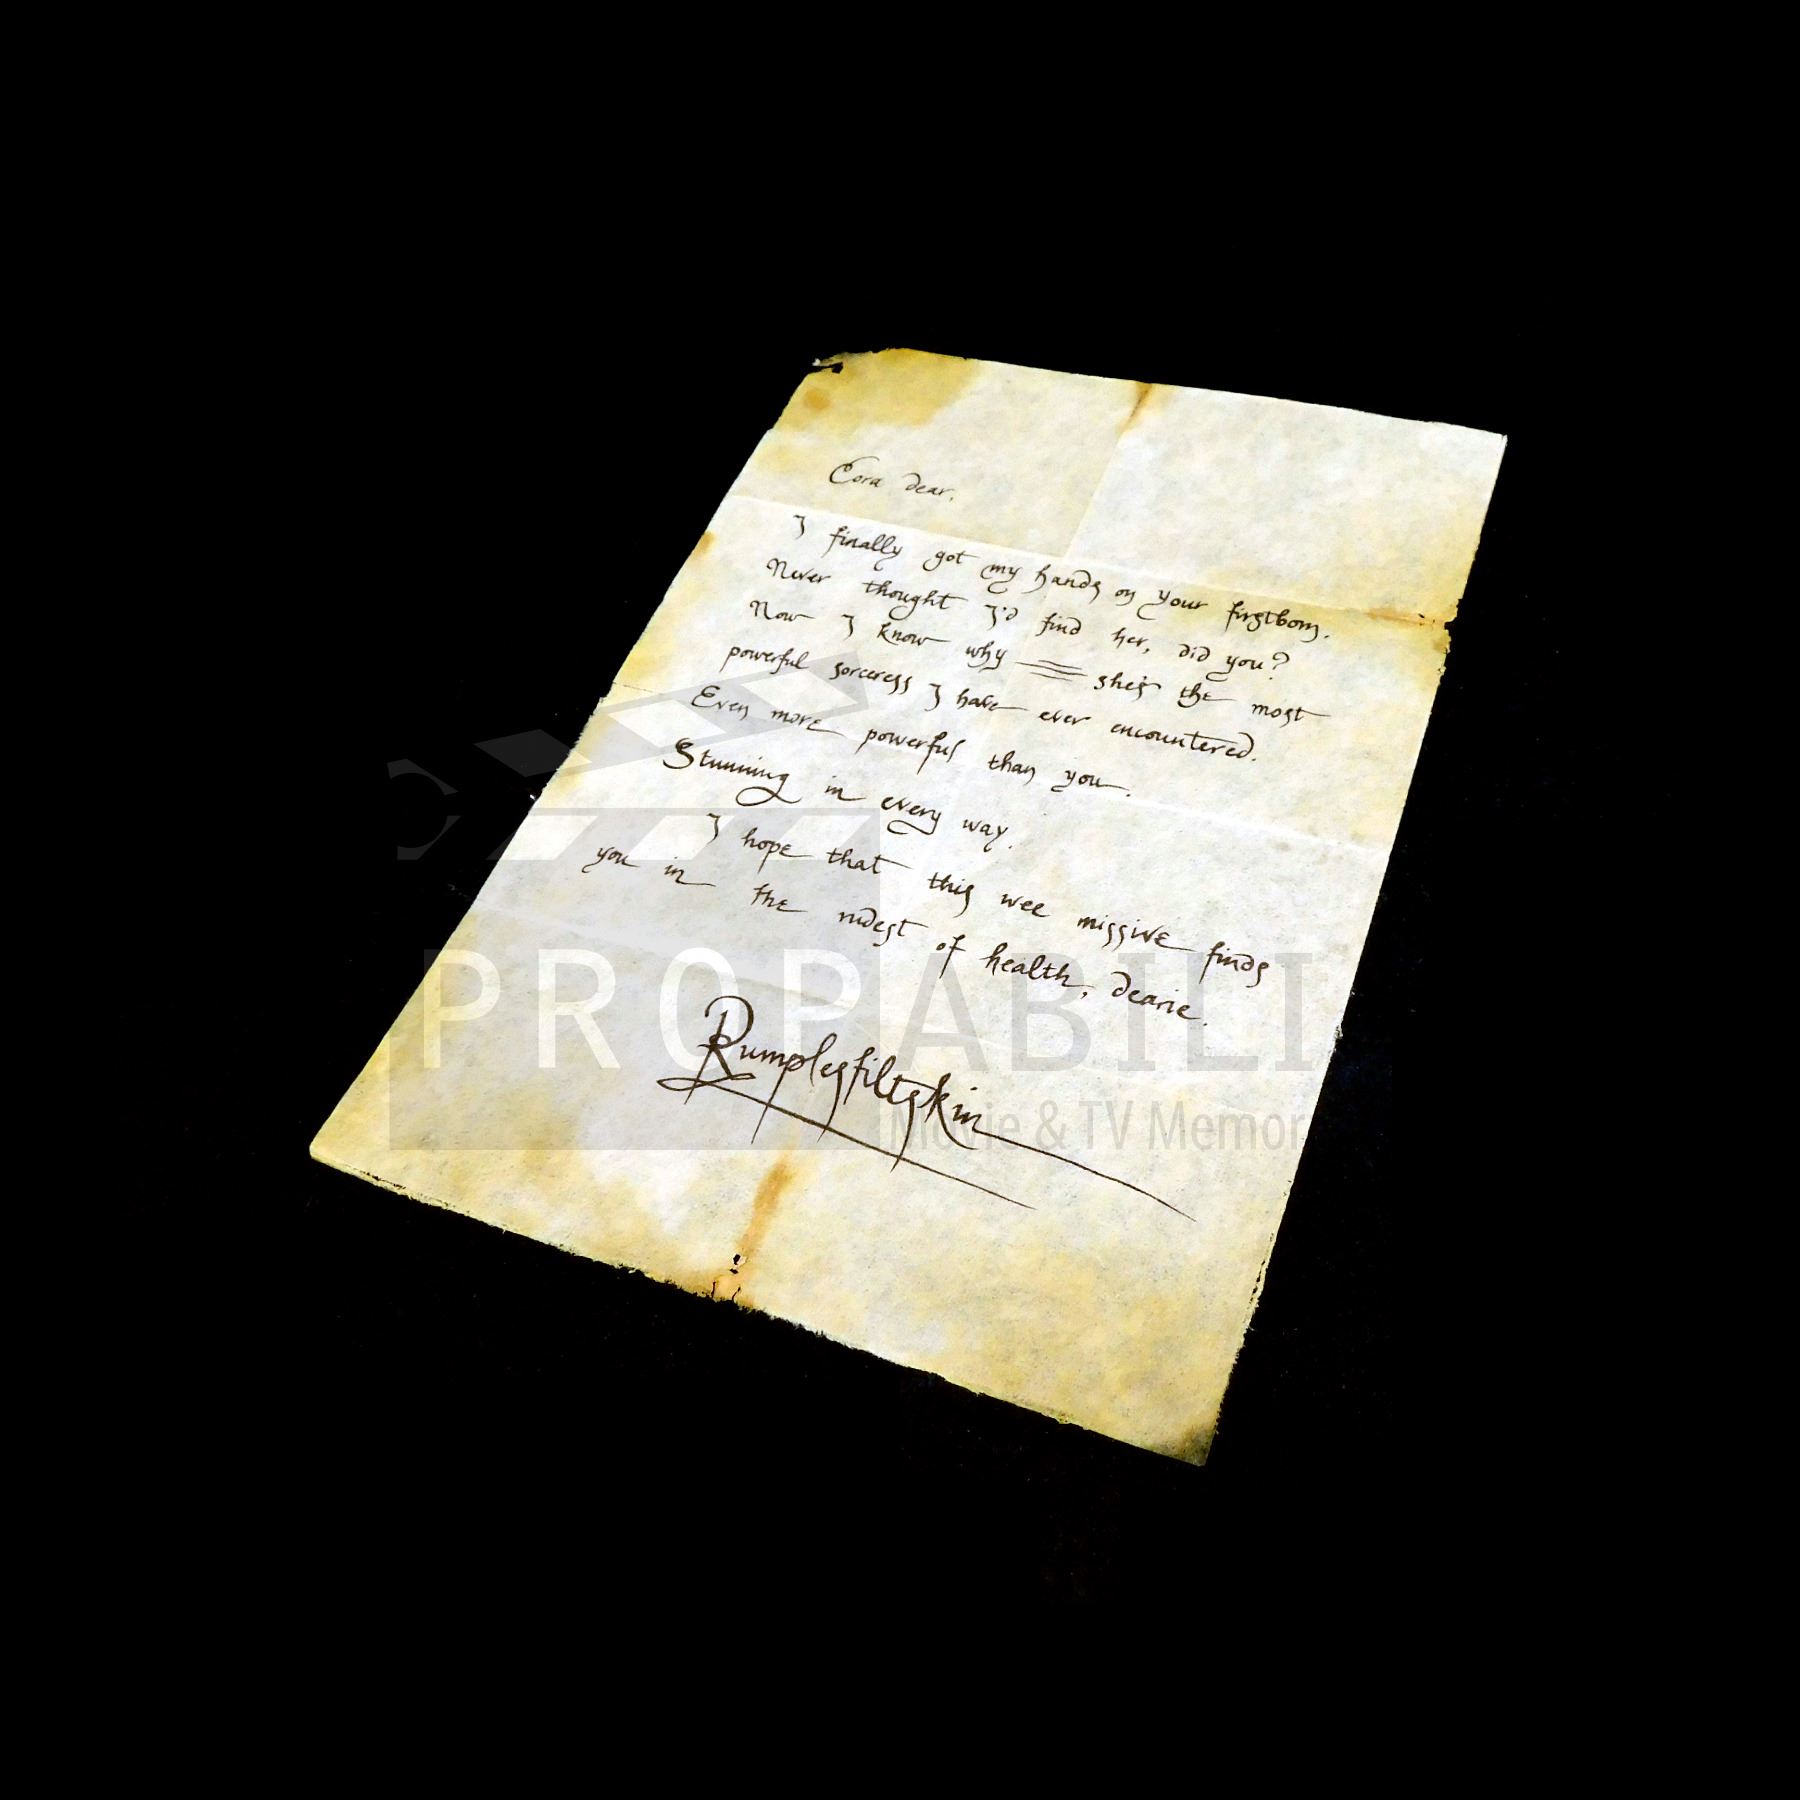 Cora dear,
I finally got my hands on your firstborn.
Never thought I'd find her, did you?
Now I know why — she's the most
powerful sorceress I have ever encountered.
Even more powerful than you.
Stunning in every way.
I hope that this wee missive finds
you in the rudest of health, dearie.
Rumplesfiltskin
PROPABILI
Movie & TV Memor